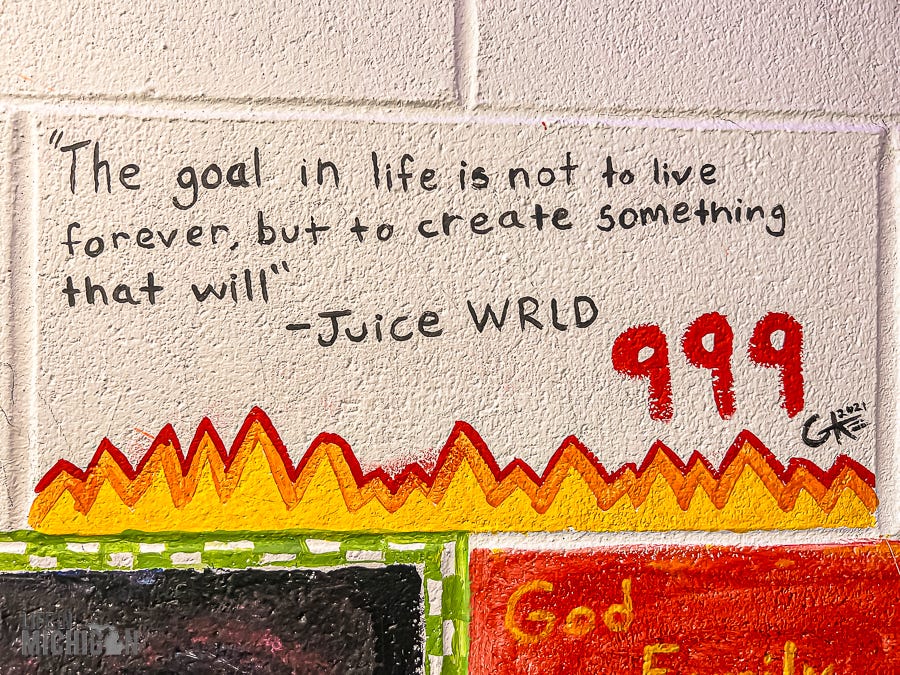 "The goal in life is not to live
forever, but to create something
that will"
-Juice WRLD
999
2021
God
Family
LIFE IN
MICHIGAN